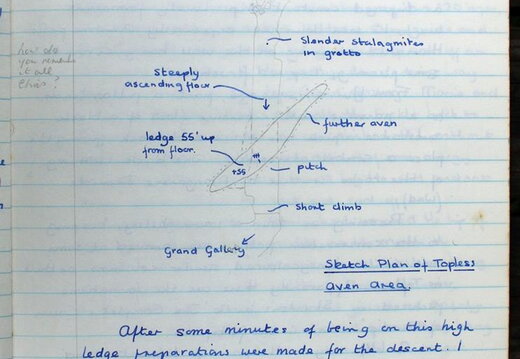 how do
you remember
it all
Chris?
Slender Stalagmites
in grotto
Steeply
ascending floor
further aven
ledge 55' up
from floor.
+55
m
pitch
Short climb
Grand Gallery
Sketch Plan of Topless
aven area.
After some minutes of being on this high
ledge preparations were made for the descent. I